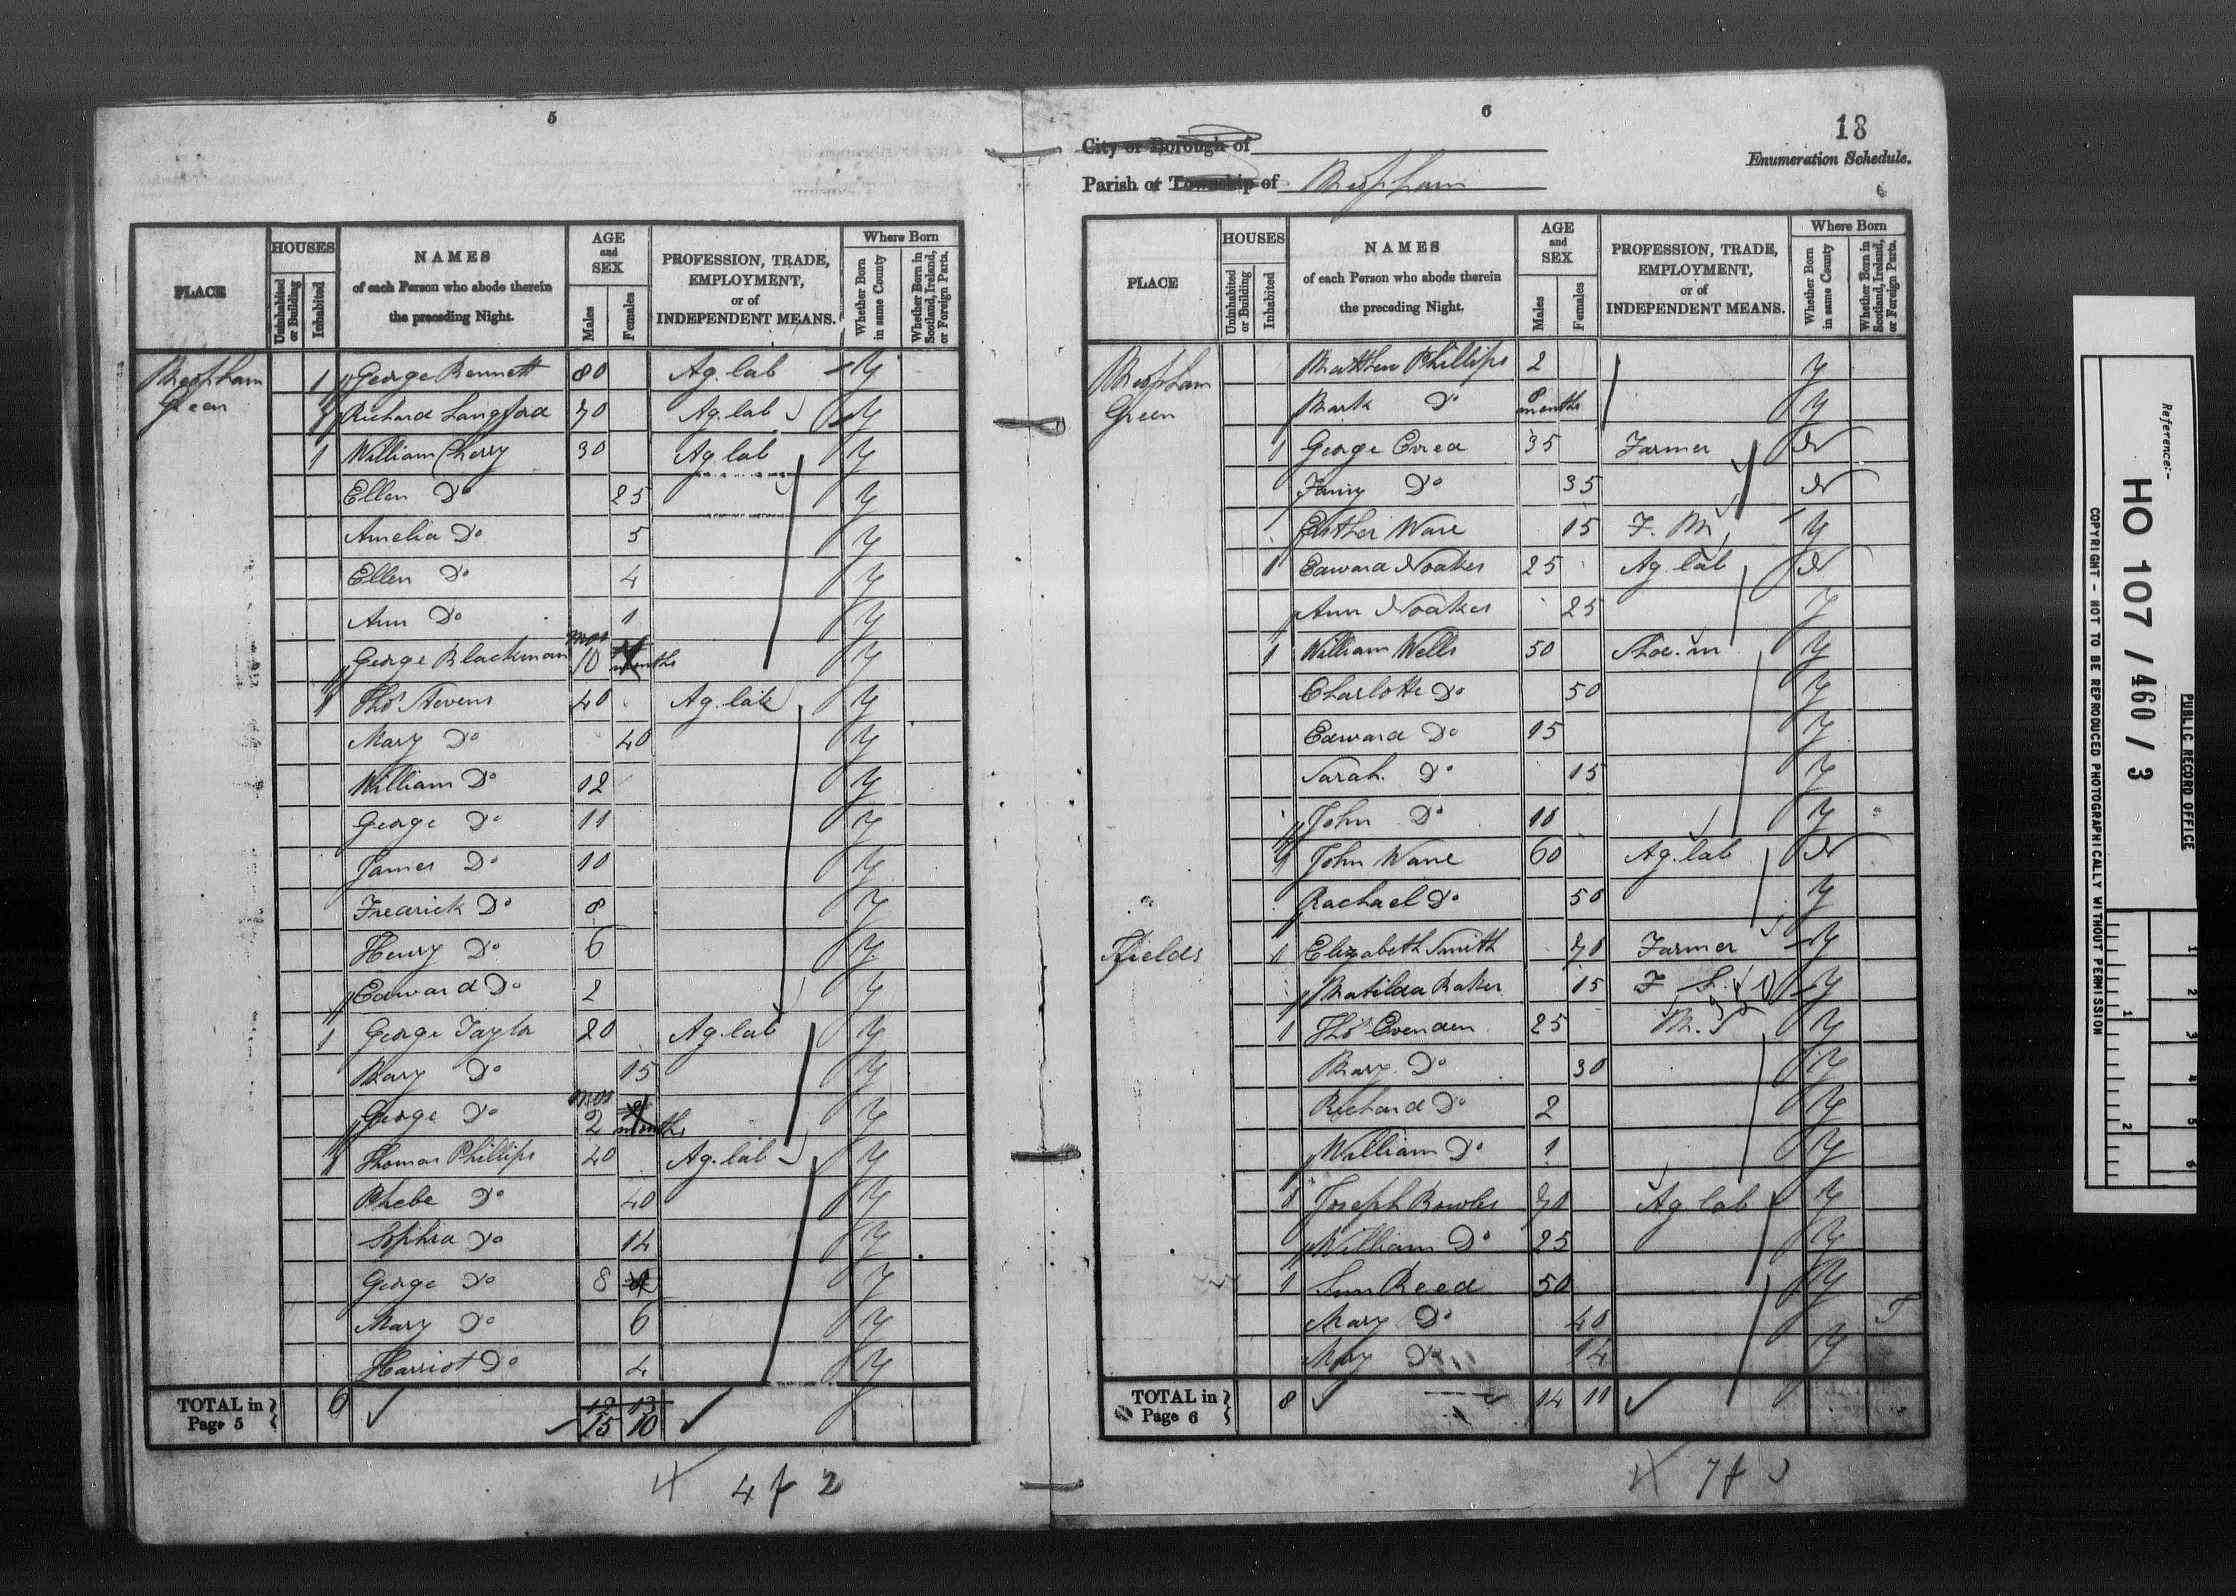 5
PLACE
HOUSES
Uninhabited or Building
Inhabited
NAMES
of each Person who abode therein
the preceding Night.
AGE
and
SEX
Males
Females
PROFESSION, TRADE,
EMPLOYMENT,
or of
INDEPENDENT MEANS.
Where Born
Whether Born in same County
Whether Born in Scotland, Ireland, or Foreign Parts.
Meopham 1 George Bennett 80 Ag. lab Y
Green 1 Richard Langford 70 Ag. lab Y
1 William Cherry 30 Ag. lab Y
Ellen Do 25 Y
Amelia Do 5 Y
Ellen Do 4 Y
Ann Do 1 Y
George Blackman mos 10 months Y
1 Thos Stevens 40 Ag. lab Y
Mary Do 40 Y
William Do 12 Y
George Do 11 Y
James Do 10 Y
Fredrick Do 8 Y
Henry Do 6 Y
Edward Do 2 Y
1 George Taylor 20 Ag. lab Y
Mary Do 15 Y
George Do mos 2 months Y
1 Thomas Phillips 40 Ag. lab Y
Phebe Do 40 Y
Sophia Do 14 Y
George Do 8 Y
Mary Do 6 Y
Harriot Do 4 Y
TOTAL in Page 5 6 12 13
15 10
4 f 2
6
18
City or Borough of
Enumeration Schedule.
Parish or Township of Meopham
PLACE
HOUSES
Uninhabited or Building
Inhabited
NAMES
of each Person who abode therein
the preceding Night.
AGE
and
SEX
Males
Females
PROFESSION, TRADE,
EMPLOYMENT,
or of
INDEPENDENT MEANS.
Where Born
Whether Born in same County
Whether Born in Scotland, Ireland, or Foreign Parts.
Meopham Matthew Phillips 2 Y
Green Mark Do 8 months Y
1 George 35 Farmer N
Fanny Do 35 N
Esther Ware 15 F. M. Y
1 Edward Noakes 25 Ag. lab N
Ann Noakes 25 Y
1 William Wells 50 Shoe. m Y
Charlotte Do 50 Y
Edward Do 15 Y
Sarah Do 15 Y
John Do 10 Y
1 John Ware 60 Ag. lab N
Rachael Do 50 Y
Fields 1 Elizabeth Smith 70 Farmer Y
Matilda Baker 15 F. S. Y
1 Thos Evenden 25 M. S Y
Mary Do 30 Y
Richard Do 2 Y
William Do 1 Y
1 Joseph Bowles 70 Ag lab Y
William Do 25 Y
1 Reed 50 Y
Mary Do 40
Mary Do 14 Y
TOTAL in Page 6 8 14 11
7 f
Reference:-
HO 107 / 460 / 3
PUBLIC RECORD OFFICE
COPYRIGHT - NOT TO BE REPRODUCED PHOTOGRAPHICALLY WITHOUT PERMISSION
1 2 3 4 5 6
1 2